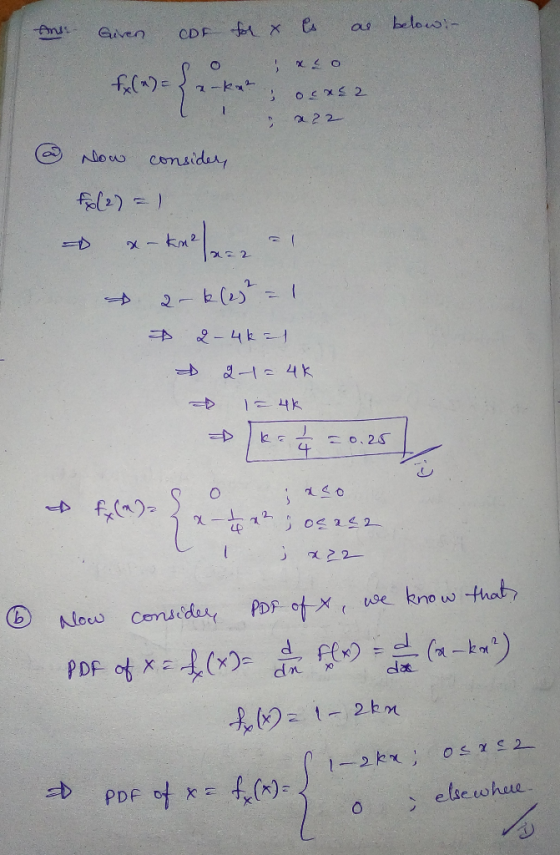 Ans:- Given CDF for X is as below:-
Fx(x) = { 0 ; x ≤ 0
x - kx² ; 0 ≤ x ≤ 2
1 ; x ≥ 2
(a) Now consider,
Fx(2) = 1
⇒ x - kx² |x=2 = 1
⇒ 2 - k(2)² = 1
⇒ 2 - 4k = 1
⇒ 2 - 1 = 4k
⇒ 1 = 4k
⇒ k = 1/4 = 0.25
⇒ Fx(x) = { 0 ; x ≤ 0
x - 1/4 x² ; 0 ≤ x ≤ 2
1 ; x ≥ 2
(b) Now consider, PDF of X, we know that,
PDF of X = fx(x) = d/dx Fx(x) = d/dx (x - kx²)
fx(x) = 1 - 2kx
⇒ PDF of X = fx(x) = { 1 - 2kx ; 0 ≤ x ≤ 2
0 ; elsewhere.